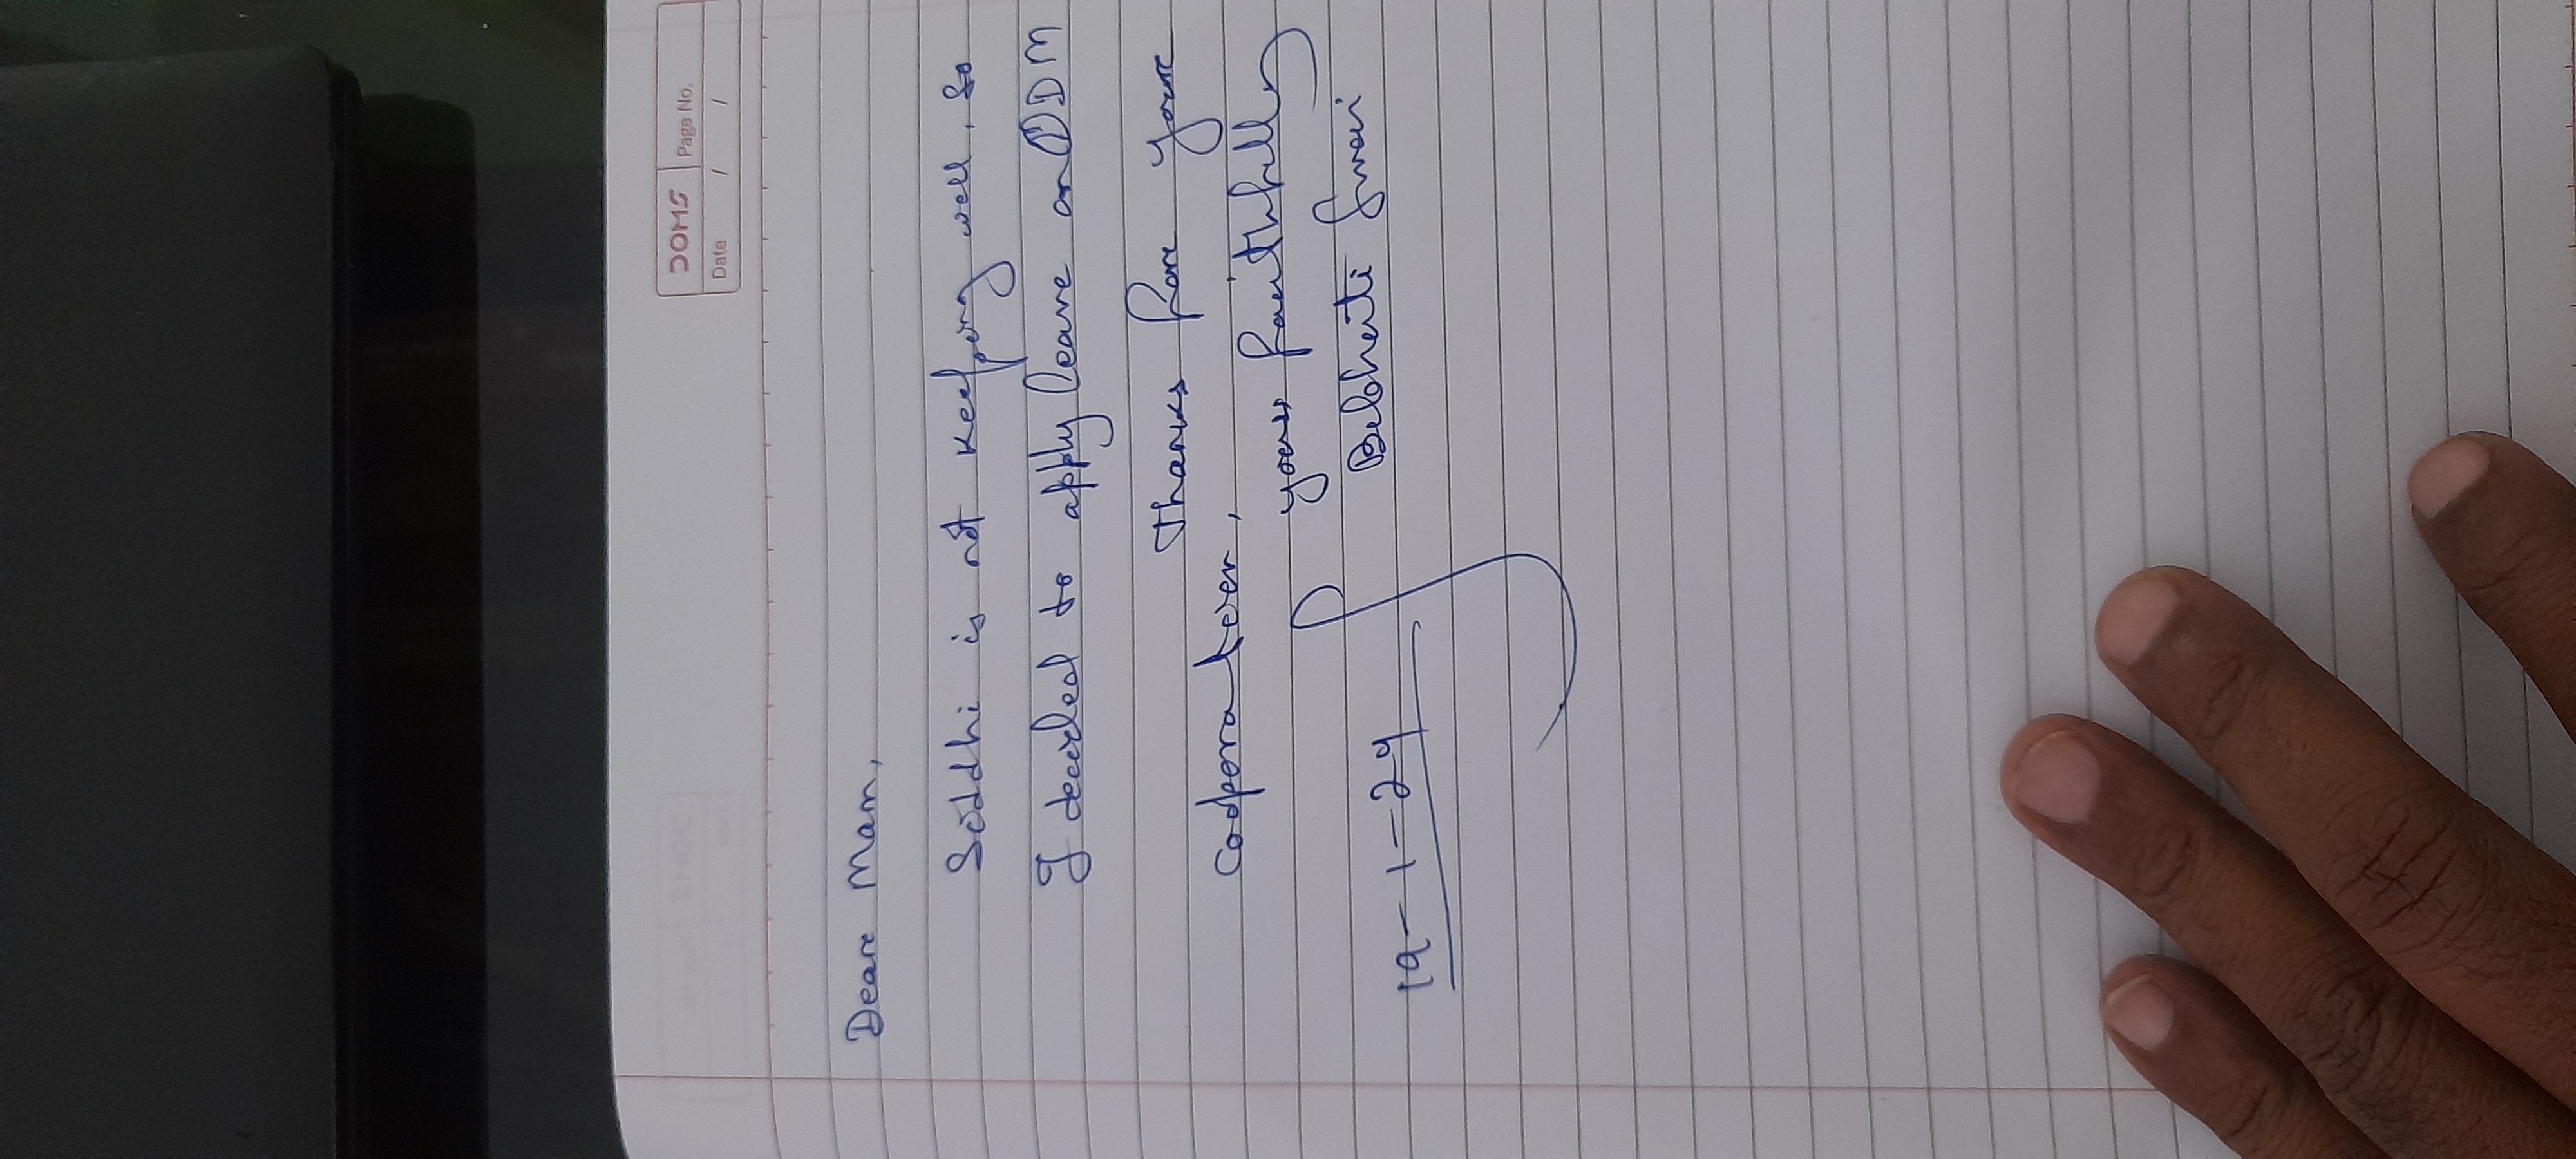 DOMS Page No.
Date / /
Deare Mam,
Siddhi is not keeping well, so
I decided to apply leave on DDM
Thanks fore youre
Coodporation,
yours faithfully
Bibhuti
19-1-24